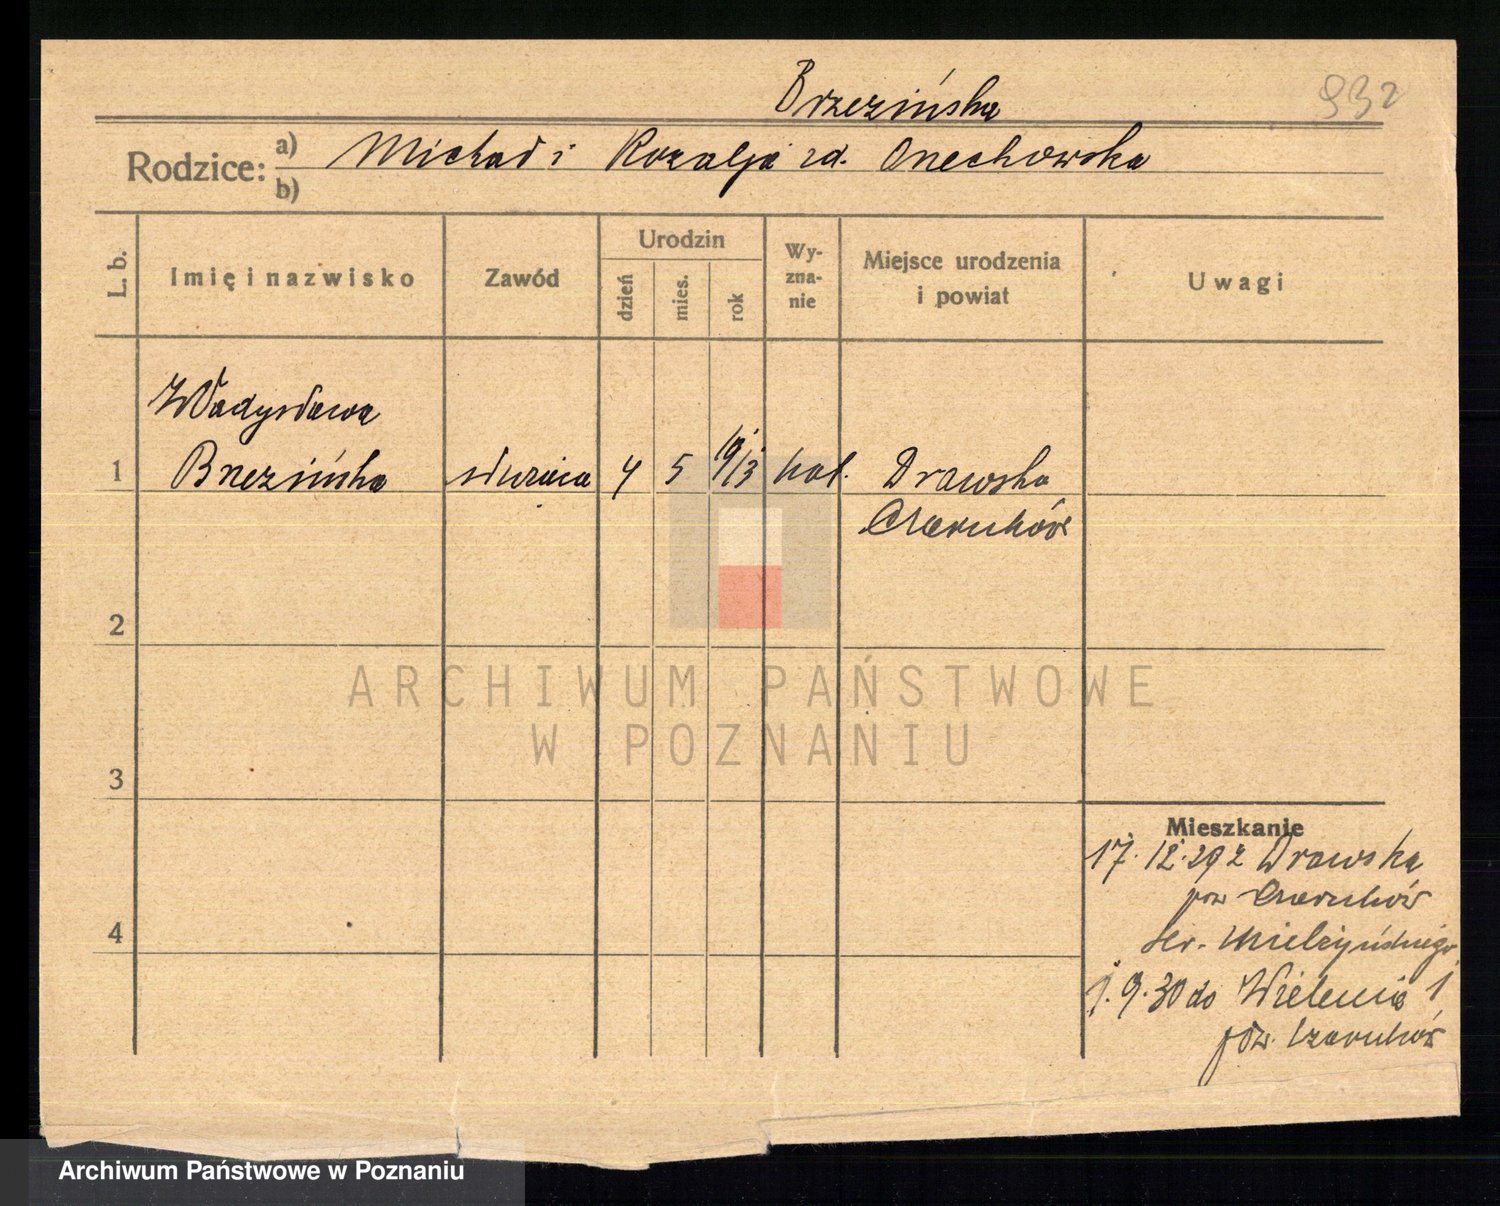 Brzezińska
932
Rodzice: a) Michał i Rozalja zd. Orzechowska
b)
L. b. Imię i nazwisko Zawód Urodzin dzień mies. rok Wy-zna-nie Miejsce urodzenia i powiat Uwagi
Władysława
1 Brzezińska służąca 4 5 1913 kat. Drawsko
Czarnków
2
3
4
Mieszkanie
17. 12. 29 z Drawska
pow Czarnków
Mielżyńskiego
1. 9. 30 do Wielenia
pow. Czarnków
ARCHIWUM PAŃSTWOWE
W POZNANIU
Archiwum Państwowe w Poznaniu